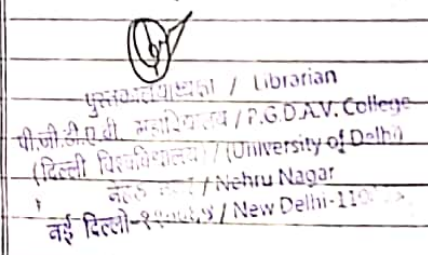 पुस्तकालयाध्यक्ष / Librarian
पी.जी.डी.ए.वी. महाविद्यालय / P.G.D.A.V. College
(दिल्ली विश्वविद्यालय) / (University of Delhi)
/ Nehru Nagar
नई दिल्ली- / New Delhi-110